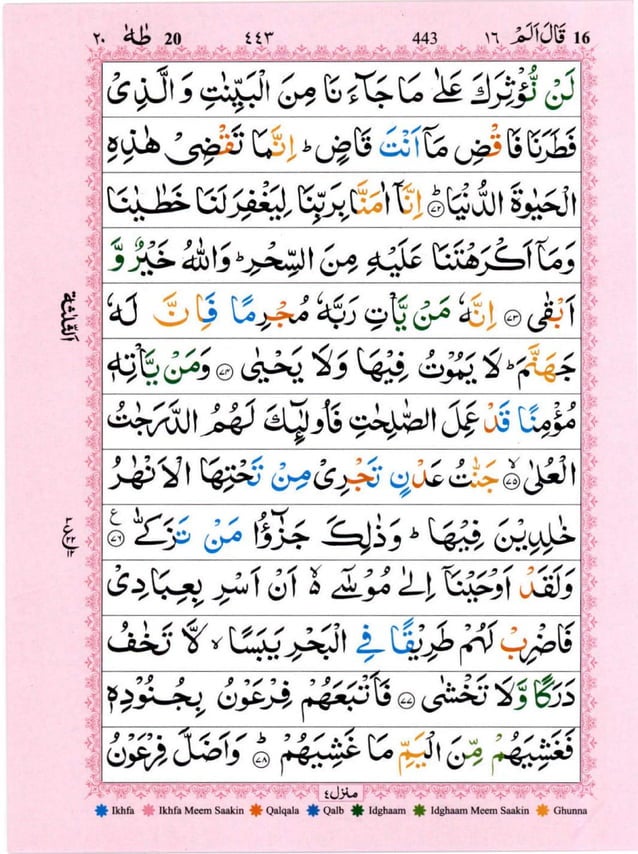 ٢٠ طٰهٰ 20 ٤٤٣ 443 ١٦ قَالَ اَلَمْ 16
لَنْ نُّؤْثِرَكَ عَلٰى مَا جَآءَنَا مِنَ الْبَيِّنٰتِ وَ الَّذِىْ
فَطَرَنَا فَاقْضِ مَاۤ اَنْتَ قَاضٍ ؕ اِنَّمَا تَقْضِىْ هٰذِهِ
الْحَيٰوةَ الدُّنْيَا ؕ ﴿۷۲﴾ اِنَّاۤ اٰمَنَّا بِرَبِّنَا لِيَغْفِرَ لَنَا خَطٰيٰنَا
وَمَاۤ اَكْرَهْتَنَا عَلَيْهِ مِنَ السِّحْرِ ؕ وَاللّٰهُ خَيْرٌ وَّ
اَبْقٰى ﴿۷۳﴾ اِنَّهٗ مَنْ يَّاْتِ رَبَّهٗ مُجْرِمًا فَاِنَّ لَهٗ
جَهَنَّمَ ؕ لَا يَمُوْتُ فِيْهَا وَلَا يَحْيٰى ﴿۷۴﴾ وَمَنْ يَّاْتِهٖ
مُؤْمِنًا قَدْ عَمِلَ الصّٰلِحٰتِ فَاُولٰٓئِكَ لَهُمُ الدَّرَجٰتُ
الْعُلٰى ۙ ﴿۷۵﴾ جَنّٰتُ عَدْنٍ تَجْرِىْ مِنْ تَحْتِهَا الْاَنْهٰرُ
خٰلِدِيْنَ فِيْهَا ؕ وَذٰلِكَ جَزٰٓؤُا مَنْ تَزَكّٰى ﴿۷۶﴾ ع
وَلَقَدْ اَوْحَيْنَاۤ اِلٰى مُوْسٰٓى ۙ اَنْ اَسْرِ بِعِبَادِىْ
فَاضْرِبْ لَهُمْ طَرِيْقًا فِى الْبَحْرِ يَبَسًا ۙ لَّا تَخٰفُ
دَرَكًا وَّلَا تَخْشٰى ﴿۷۷﴾ فَاَتْبَعَهُمْ فِرْعَوْنُ بِجُنُوْدِهٖ
فَغَشِيَهُمْ مِّنَ الْيَمِّ مَا غَشِيَهُمْ ؕ ﴿۷۸﴾ وَاَضَلَّ فِرْعَوْنُ
منزل ٤
Ikhfa Ikhfa Meem Saakin Qalqala Qalb Idghaam Idghaam Meem Saakin Ghunna